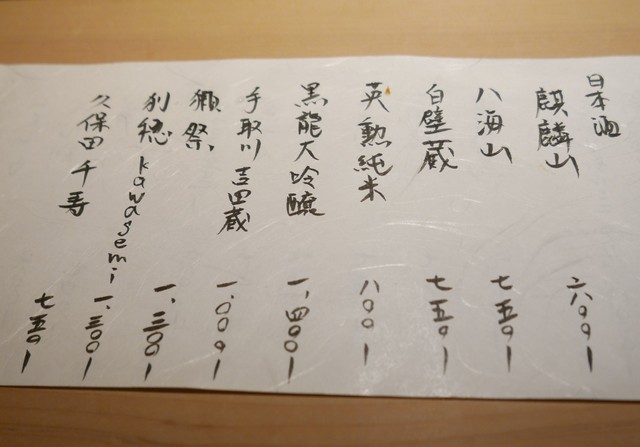 日本酒
麒麟山 六〇〇ー
八海山 七五〇ー
白壁蔵 七五〇ー
英勲純米 八〇〇ー
黒龍大吟醸 一、四〇〇ー
手取川 吉田蔵 一、〇〇〇ー
獺祭 一、三〇〇ー
刈穂 kawasemi 一、三〇〇ー
久保田 千寿 七五〇ー